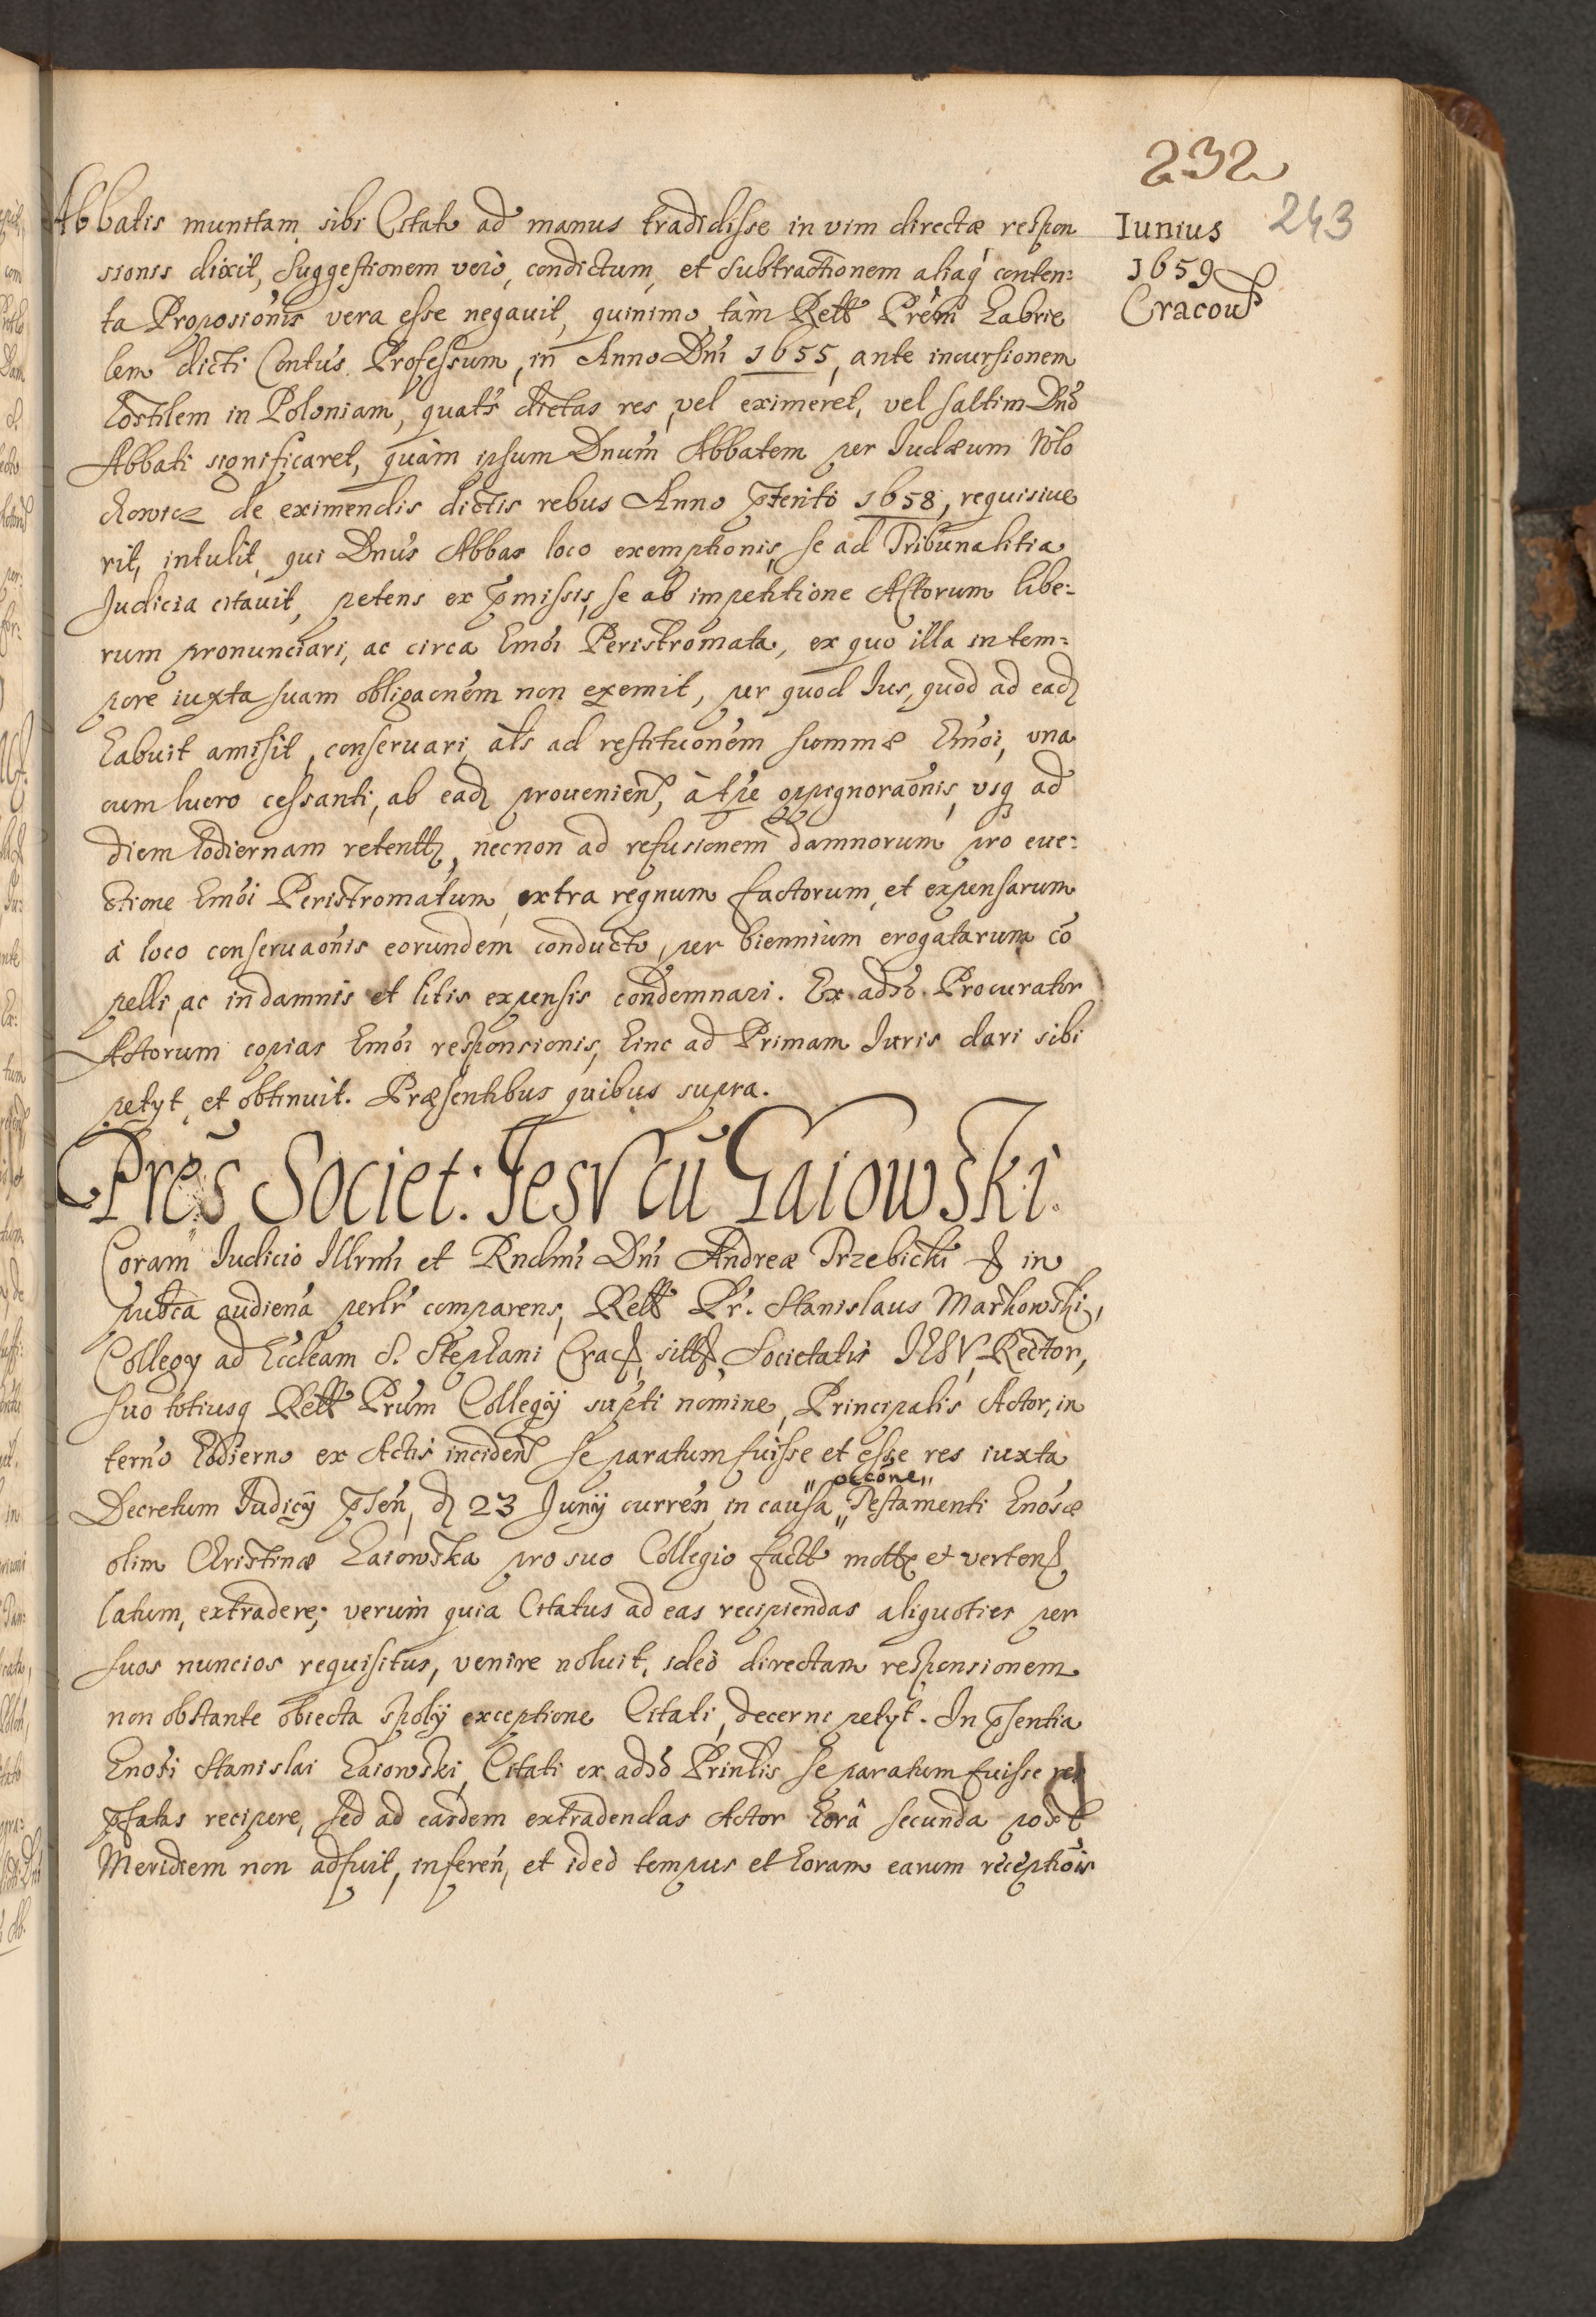 232
243
Iunius
1659
Cracouiæ
Abbatis munitam sibi Citato ad manus tradidisse in vim directæ respon
sionis dixit, suggestionem verò, condictum, et subtractionem aliaq́ conten:
ta Proposionis vera esse negavit, quinimo tàm Rełł Prẽm Gabrie
lem dicti Contus Professum, in Anno Dńi 1655, ante incursionem
hostilem in Poloniam, quats dictas res, vel eximeret, vel saltim Dńo
Abbati significaret, quàm ipsum Dnum Abbatem per Iudæum Wło
chowicz de eximendis dictis rebus Anno p̃terito 1658, requisiue
rit, intulit, qui Dnus Abbas loco exemptionis, se ad Tribunalitia
Judicia citavit, petens ex p̃missis, se ab impetitione Actorum libe:
rum pronunciari, ac circa hmói Peristromata, ex quo illa in tem:
pore iuxta suam obligaonem non exemit, per quod Ius, quod ad eadȝ
habuit amisit, conseruari, als ad restituonem summæ hmói, una
cum lucro cessanti, ab eadȝ prouenien, à tpe oppignoraonis, vsq ad
diem hodiernam retentȝ, necnon ad refusionem damnorum pro eue:
ctione hmói Peristromatum extra regnum factorum, et expensarum
à loco conseruaonis eorundem conducto, per biennium erogatarum cō
pelli, ac in damnis et litis expensis condemnari. Ex aduo Procurator
Actorum copias hmói responsionis, hinc ad Primam Iuris dari sibi
petyt, et obtinuit. Præsentibus quibus supra.
Prẽs Societ: Jesv cũ Gaiowski.
Coram Iudicio Illrmi et Rndmi Dni Andreæ Trzebicki & in
pubca audiena perlr comparens, Rełł Pr. Stanislaus Markowski,
Collegy ad Eccleam S. Stephani Crac, sitt, Societatis IESV, Rector,
suo totiusq Rełł Prum Collegÿ supti nomine, Principalis Actor, in
terno hodierno ex Actis inciden se paratum fuisse et esse res iuxta
Decretum Iudicÿ p̃sen, dȝ 23 Junij curren, in causa „ occone „ Testamenti Gnosæ
olim Christinæ Gaiowska pro suo Collegio factȝ mottȝ et verten
latum, extradere; verum quia Citatus ad eas recipiendas aliquoties per
suos nuncios requisitus, venire noluit, ideò directam responsionem
non obstante obiecta spolÿ exceptione Citati, decerni petyt. In p̃sentia
Gnosi Stanislai Gaiowski, Citati ex aduo Prinlis se paratum fuisse res
p̃fatas recipere, sed ad easdem extradendas Actor horâ secunda post
Meridiem non adfuit, inferen, et ideò tempus et horam earum recepthois